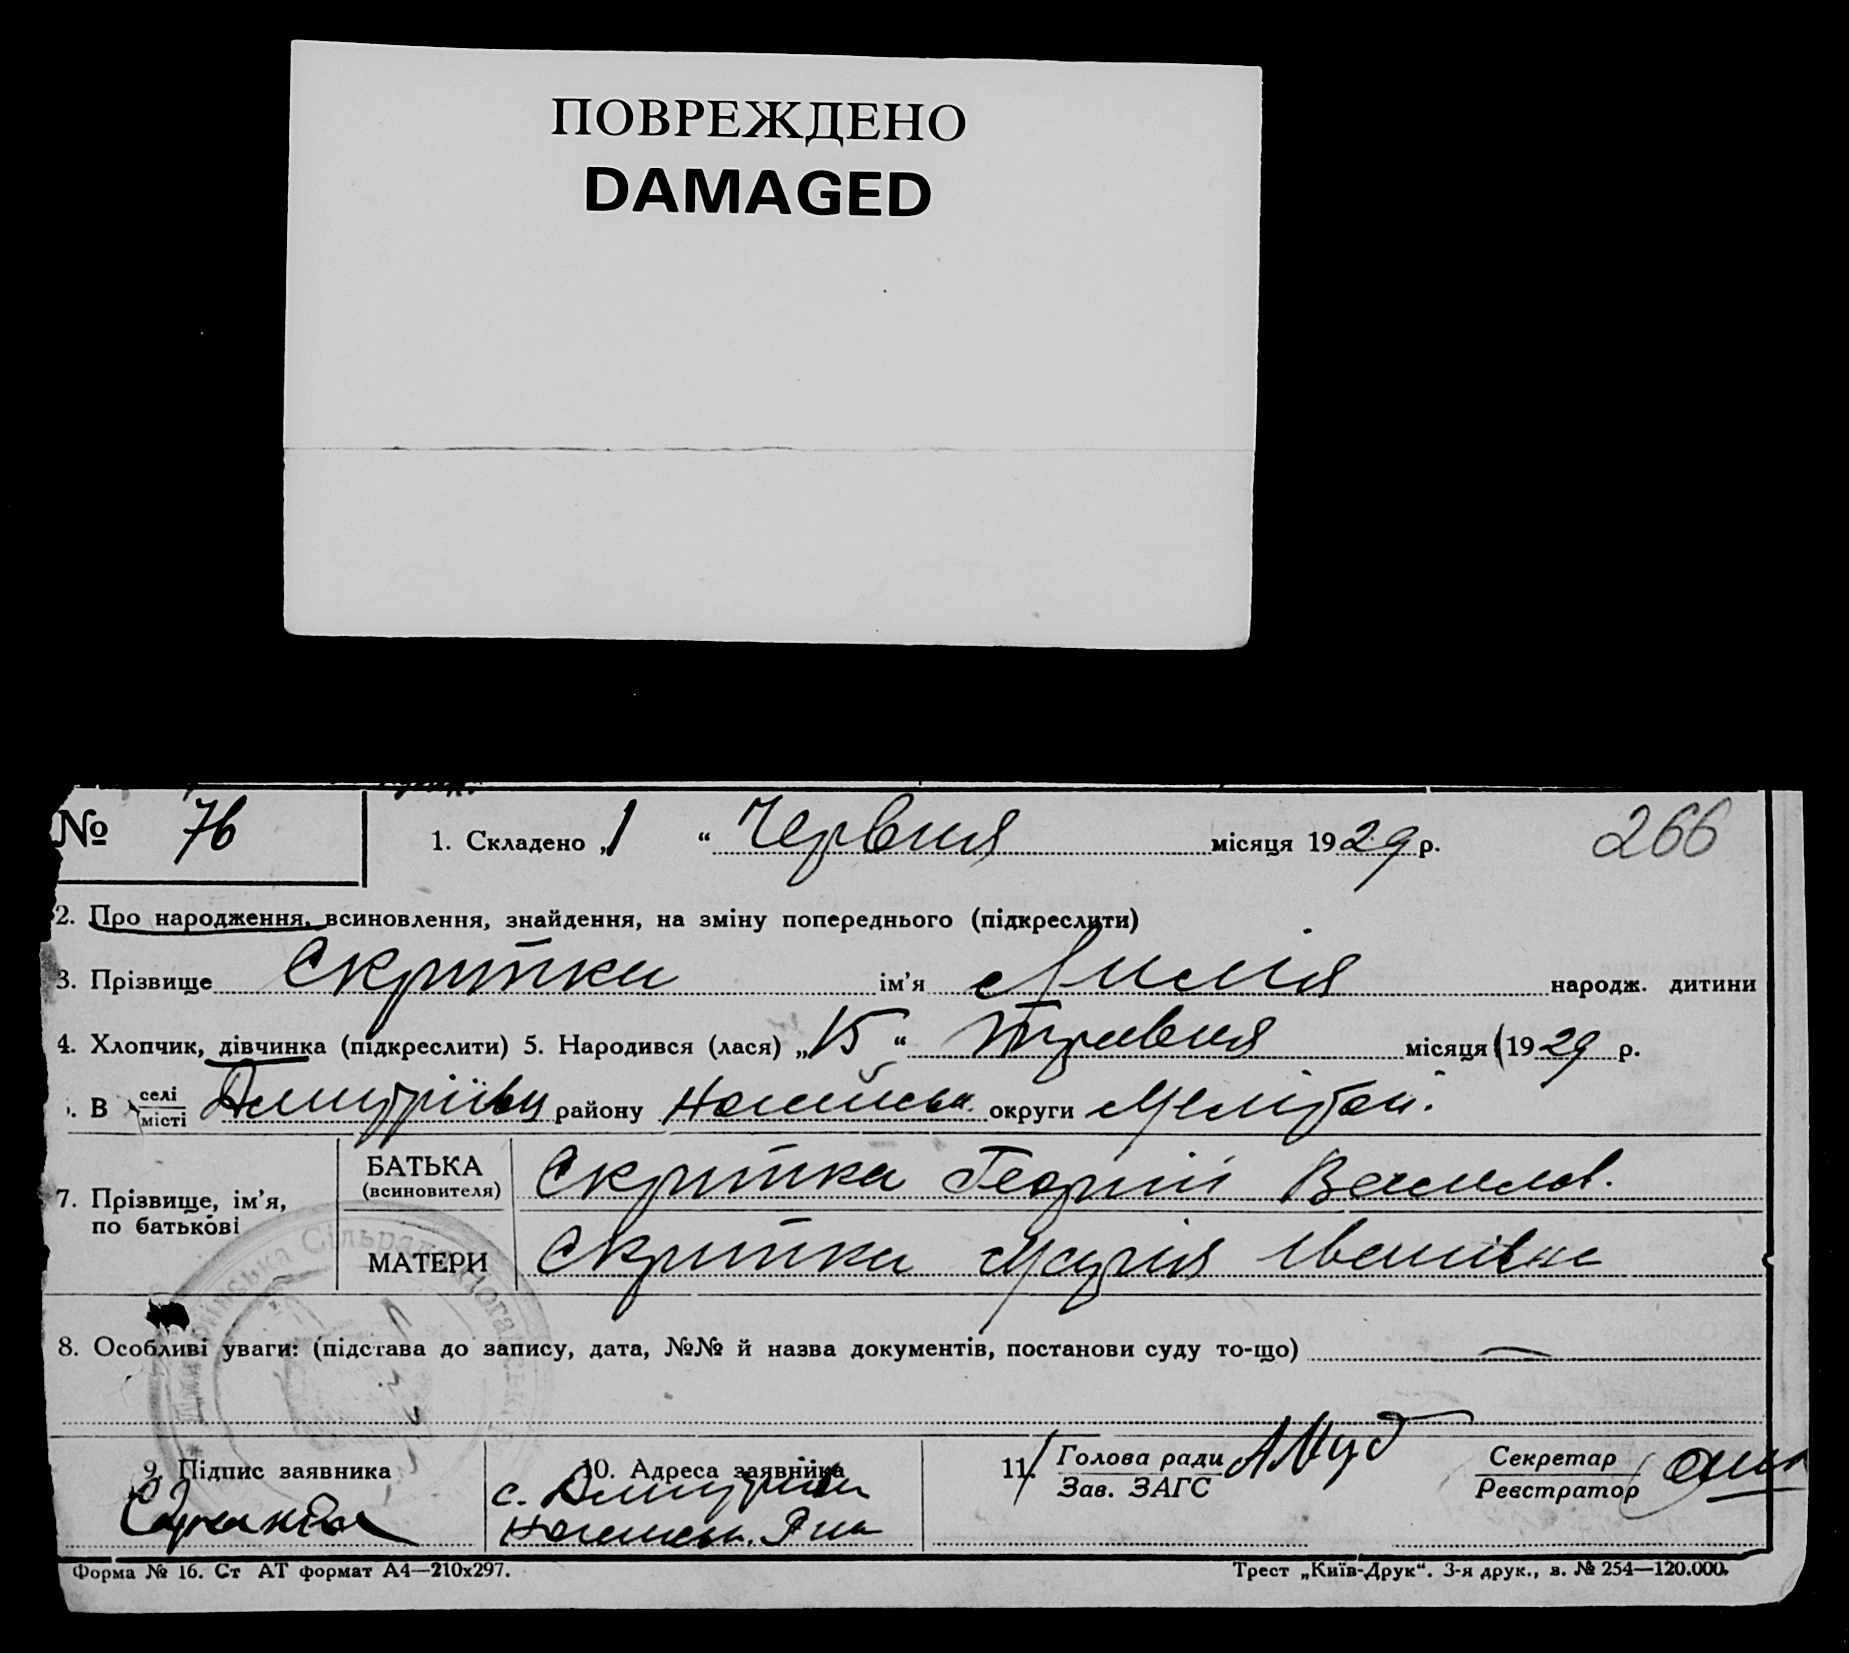 ПОВРЕЖДЕНО
DAMAGED
№ 76
1. Складено „1“ Червня місяця 1929 р. 266
2. Про народження, всиновлення, знайдення, на зміну попереднього (підкреслити)
3. Прізвище Скритка ім’я Лилія народж. дитини
4. Хлопчик, дівчинка (підкреслити) 5. Народився (лася) „15“ Травня місяця 1929 р.
. В селі / місті Дмитріївці району Ногайськ. округи Мелітоп.
7. Прізвище, ім’я, по батькові
БАТЬКА (всиновителя) Скритка Георгій Василов.
МАТЕРИ Скритка Марія Іванівна
8. Особливі уваги: (підстава до запису, дата, №№ й назва документів, постанови суду то-що) —
9. Підпис заявника
10. Адреса заявника
с. Дмитрівки
Ногайськ. Р-на
11. Голова ради / Зав. ЗАГС
Секретар / Реєстратор
Форма № 16. Ст АТ формат А4—210х297.
Трест „Київ-Друк“. 3-я друк., з. № 254—120.000.